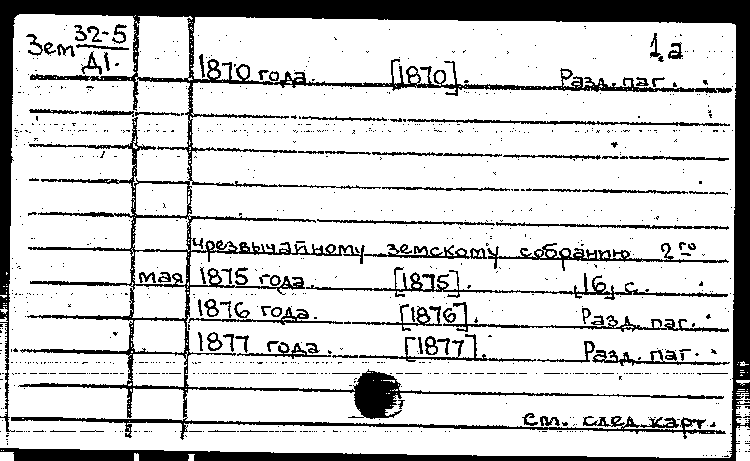 Зем 32-5
Д1.
1.а
1870 года. [1870]. Разд. паг.
чрезвычайному земскому собранию 2го
мая 1875 года. [1875]. [16] с.
1876 года. [1876]. Разд. паг.
1877 года. [1877]. Разд. паг.
см. след. карт.